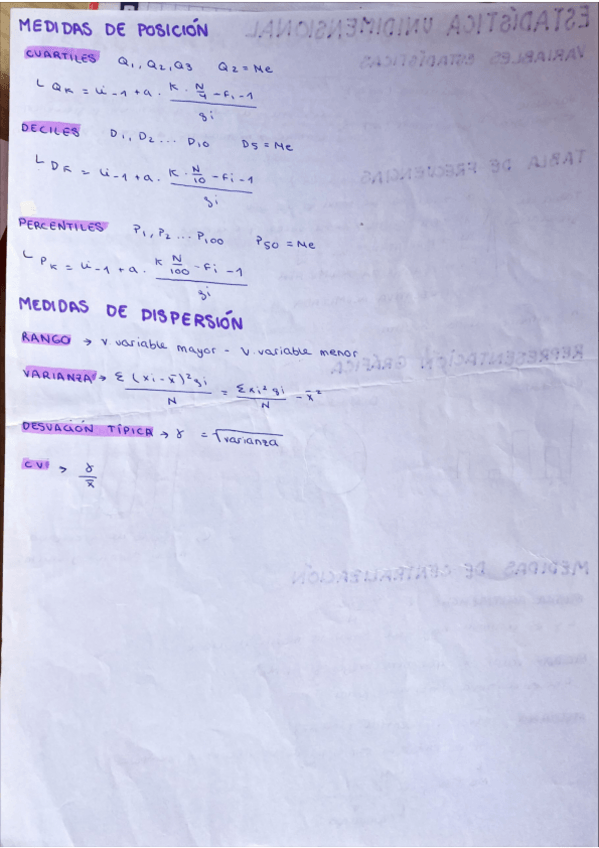 MEDIDAS DE POSICIÓN
CUARTILES Q1, Q2, Q3 Q2 = Me
QK = Li-1 + a · (K · N/4 - Fi-1) / gi
DECILES D1, D2 ... D10 D5 = Me
DK = Li-1 + a · (K · N/10 - Fi-1) / gi
PERCENTILES P1, P2 ... P100 P50 = Me
PK = Li-1 + a · (K N/100 - Fi-1) / gi
MEDIDAS DE DISPERSIÓN
RANGO → V variable mayor - V. variable menor
VARIANZA → Σ (xi - x̄)² gi / N = Σ xi² gi / N - x̄²
DESVIACIÓN TÍPICA → γ = √varianza
CV → γ / x̄
ESTADÍSTICA UNIDIMENSIONAL
VARIABLES ESTADÍSTICAS
TABLA DE FRECUENCIAS
REPRESENTACIÓN GRÁFICA
MEDIDAS DE CENTRALIZACIÓN